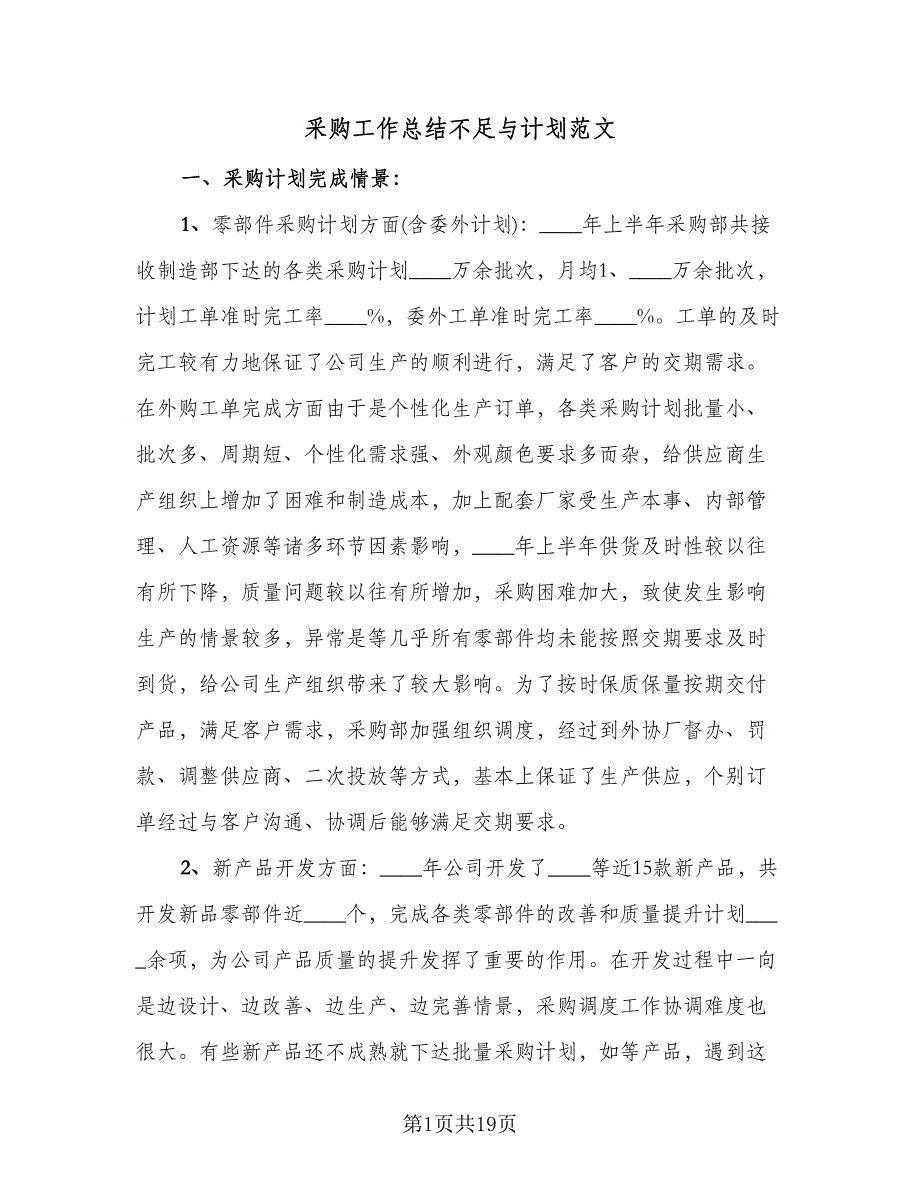 采购工作总结不足与计划范文
一、采购计划完成情景：
1、零部件采购计划方面(含委外计划)：____年上半年采购部共接
收制造部下达的各类采购计划____万余批次，月均1、____万余批次，
计划工单准时完工率____%，委外工单准时完工率____%。工单的及时
完工较有力地保证了公司生产的顺利进行，满足了客户的交期需求。
在外购工单完成方面由于是个性化生产订单，各类采购计划批量小、
批次多、周期短、个性化需求强、外观颜色要求多而杂，给供应商生
产组织上增加了困难和制造成本，加上配套厂家受生产本事、内部管
理、人工资源等诸多环节因素影响，____年上半年供货及时性较以往
有所下降，质量问题较以往有所增加，采购困难加大，致使发生影响
生产的情景较多，异常是等几乎所有零部件均未能按照交期要求及时
到货，给公司生产组织带来了较大影响。为了按时保质保量按期交付
产品，满足客户需求，采购部加强组织调度，经过到外协厂督办、罚
款、调整供应商、二次投放等方式，基本上保证了生产供应，个别订
单经过与客户沟通、协调后能够满足交期要求。
2、新产品开发方面：____年公司开发了____等近15款新产品，共
开发新品零部件近____个，完成各类零部件的改善和质量提升计划___
_余项，为公司产品质量的提升发挥了重要的作用。在开发过程中一向
是边设计、边改善、边生产、边完善情景，采购调度工作协调难度也
很大。有些新产品还不成熟就下达批量采购计划，如等产品，遇到这
第1页共19页